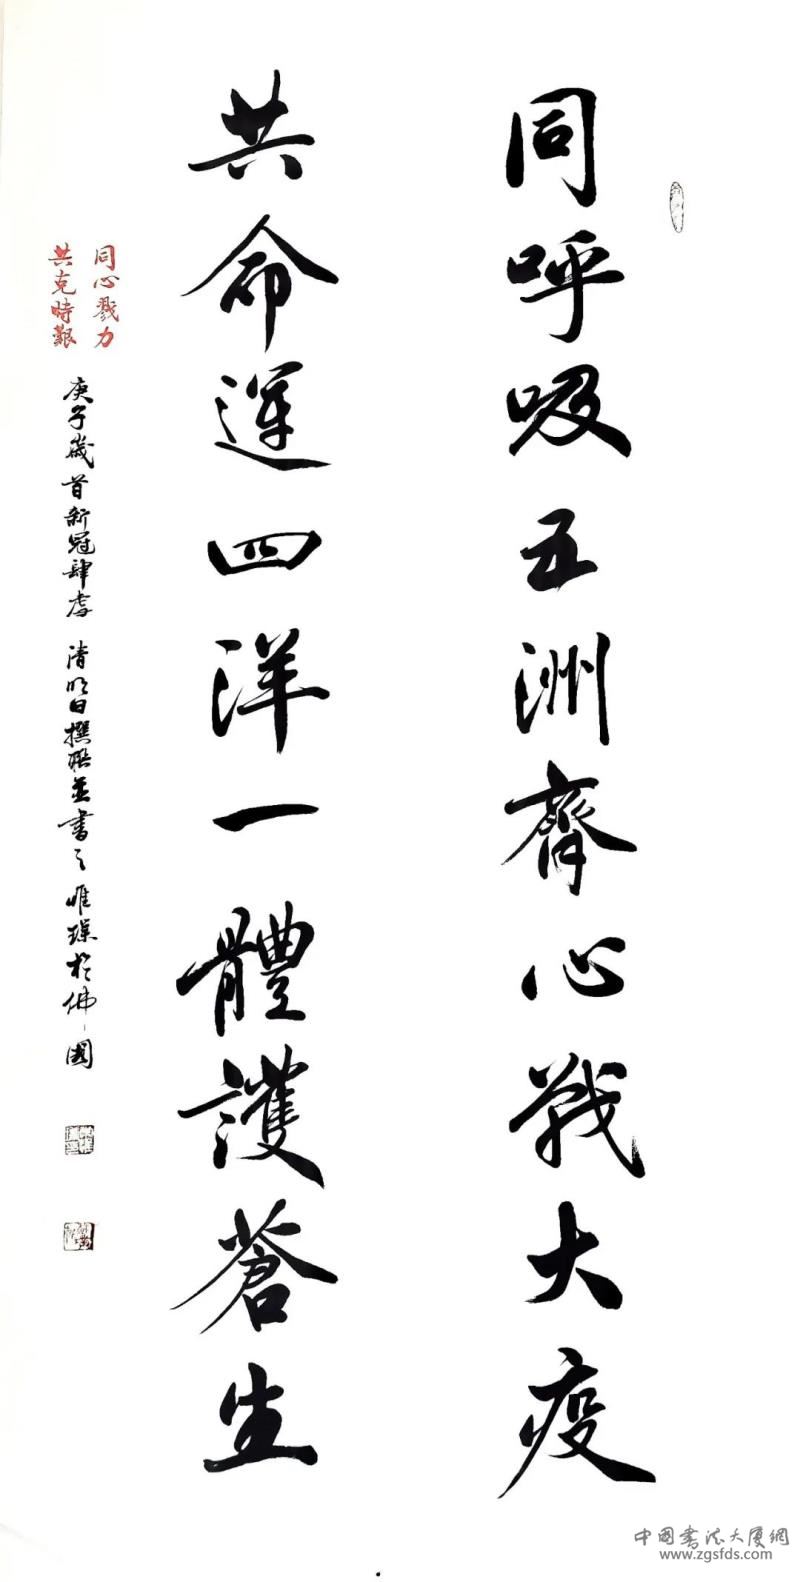 同呼吸五洲齊心戰大疫
共命運四洋一體護蒼生
同心戮力
共克時艱
庚子歲首新冠肆虐 清明日撰聯並書之 惟璞於佛國
中國書法大廈網
www.zgsfds.com